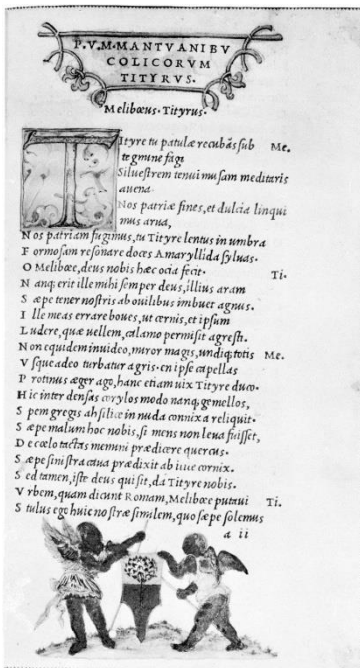 P.V.M. MANTVANI BV
COLICORVM
TITYRVS.
Meliboeus. Tityrus.
TItyre tu patulæ recubãs sub Me.
tegmine fagi
Siluestrem tenui musam meditaris
auena.
Nos patriæ fines, et dulcia linqui
mus arua,
Nos patriam fugimus, tu Tityre lentus in umbra
Formosam resonare doces Amaryllida syluas.
O Meliboee, deus nobis hæc ocia fecit. Ti.
Nanq; erit ille mihi semper deus, illius aram
Sæpe tener nostris ab ouilibus imbuet agnus.
Ille meas errare boues, ut cernis, et ipsum
Ludere, quæ uellem, calamo permisit agresti.
Non equidem inuideo, miror magis, undiq; totis Me.
Vsque adeo turbatur agris. en ipse capellas
Protinus æger ago, hanc etiam uix Tityre duco.
Hic inter densas corylos modo nanq; gemellos,
Spem gregis ah silice in nuda connixa reliquit.
Sæpe malum hoc nobis, si mens non leua fuisset,
De coelo tactas memini prædicere quercus.
Sæpe sinistra caua prædixit ab ilice cornix.
Sed tamen, iste deus qui sit, da Tityre nobis.
Vrbem, quam dicunt Romam, Meliboee putaui Ti.
Stultus ego huic nostræ similem, quo sæpe solemus
a ii